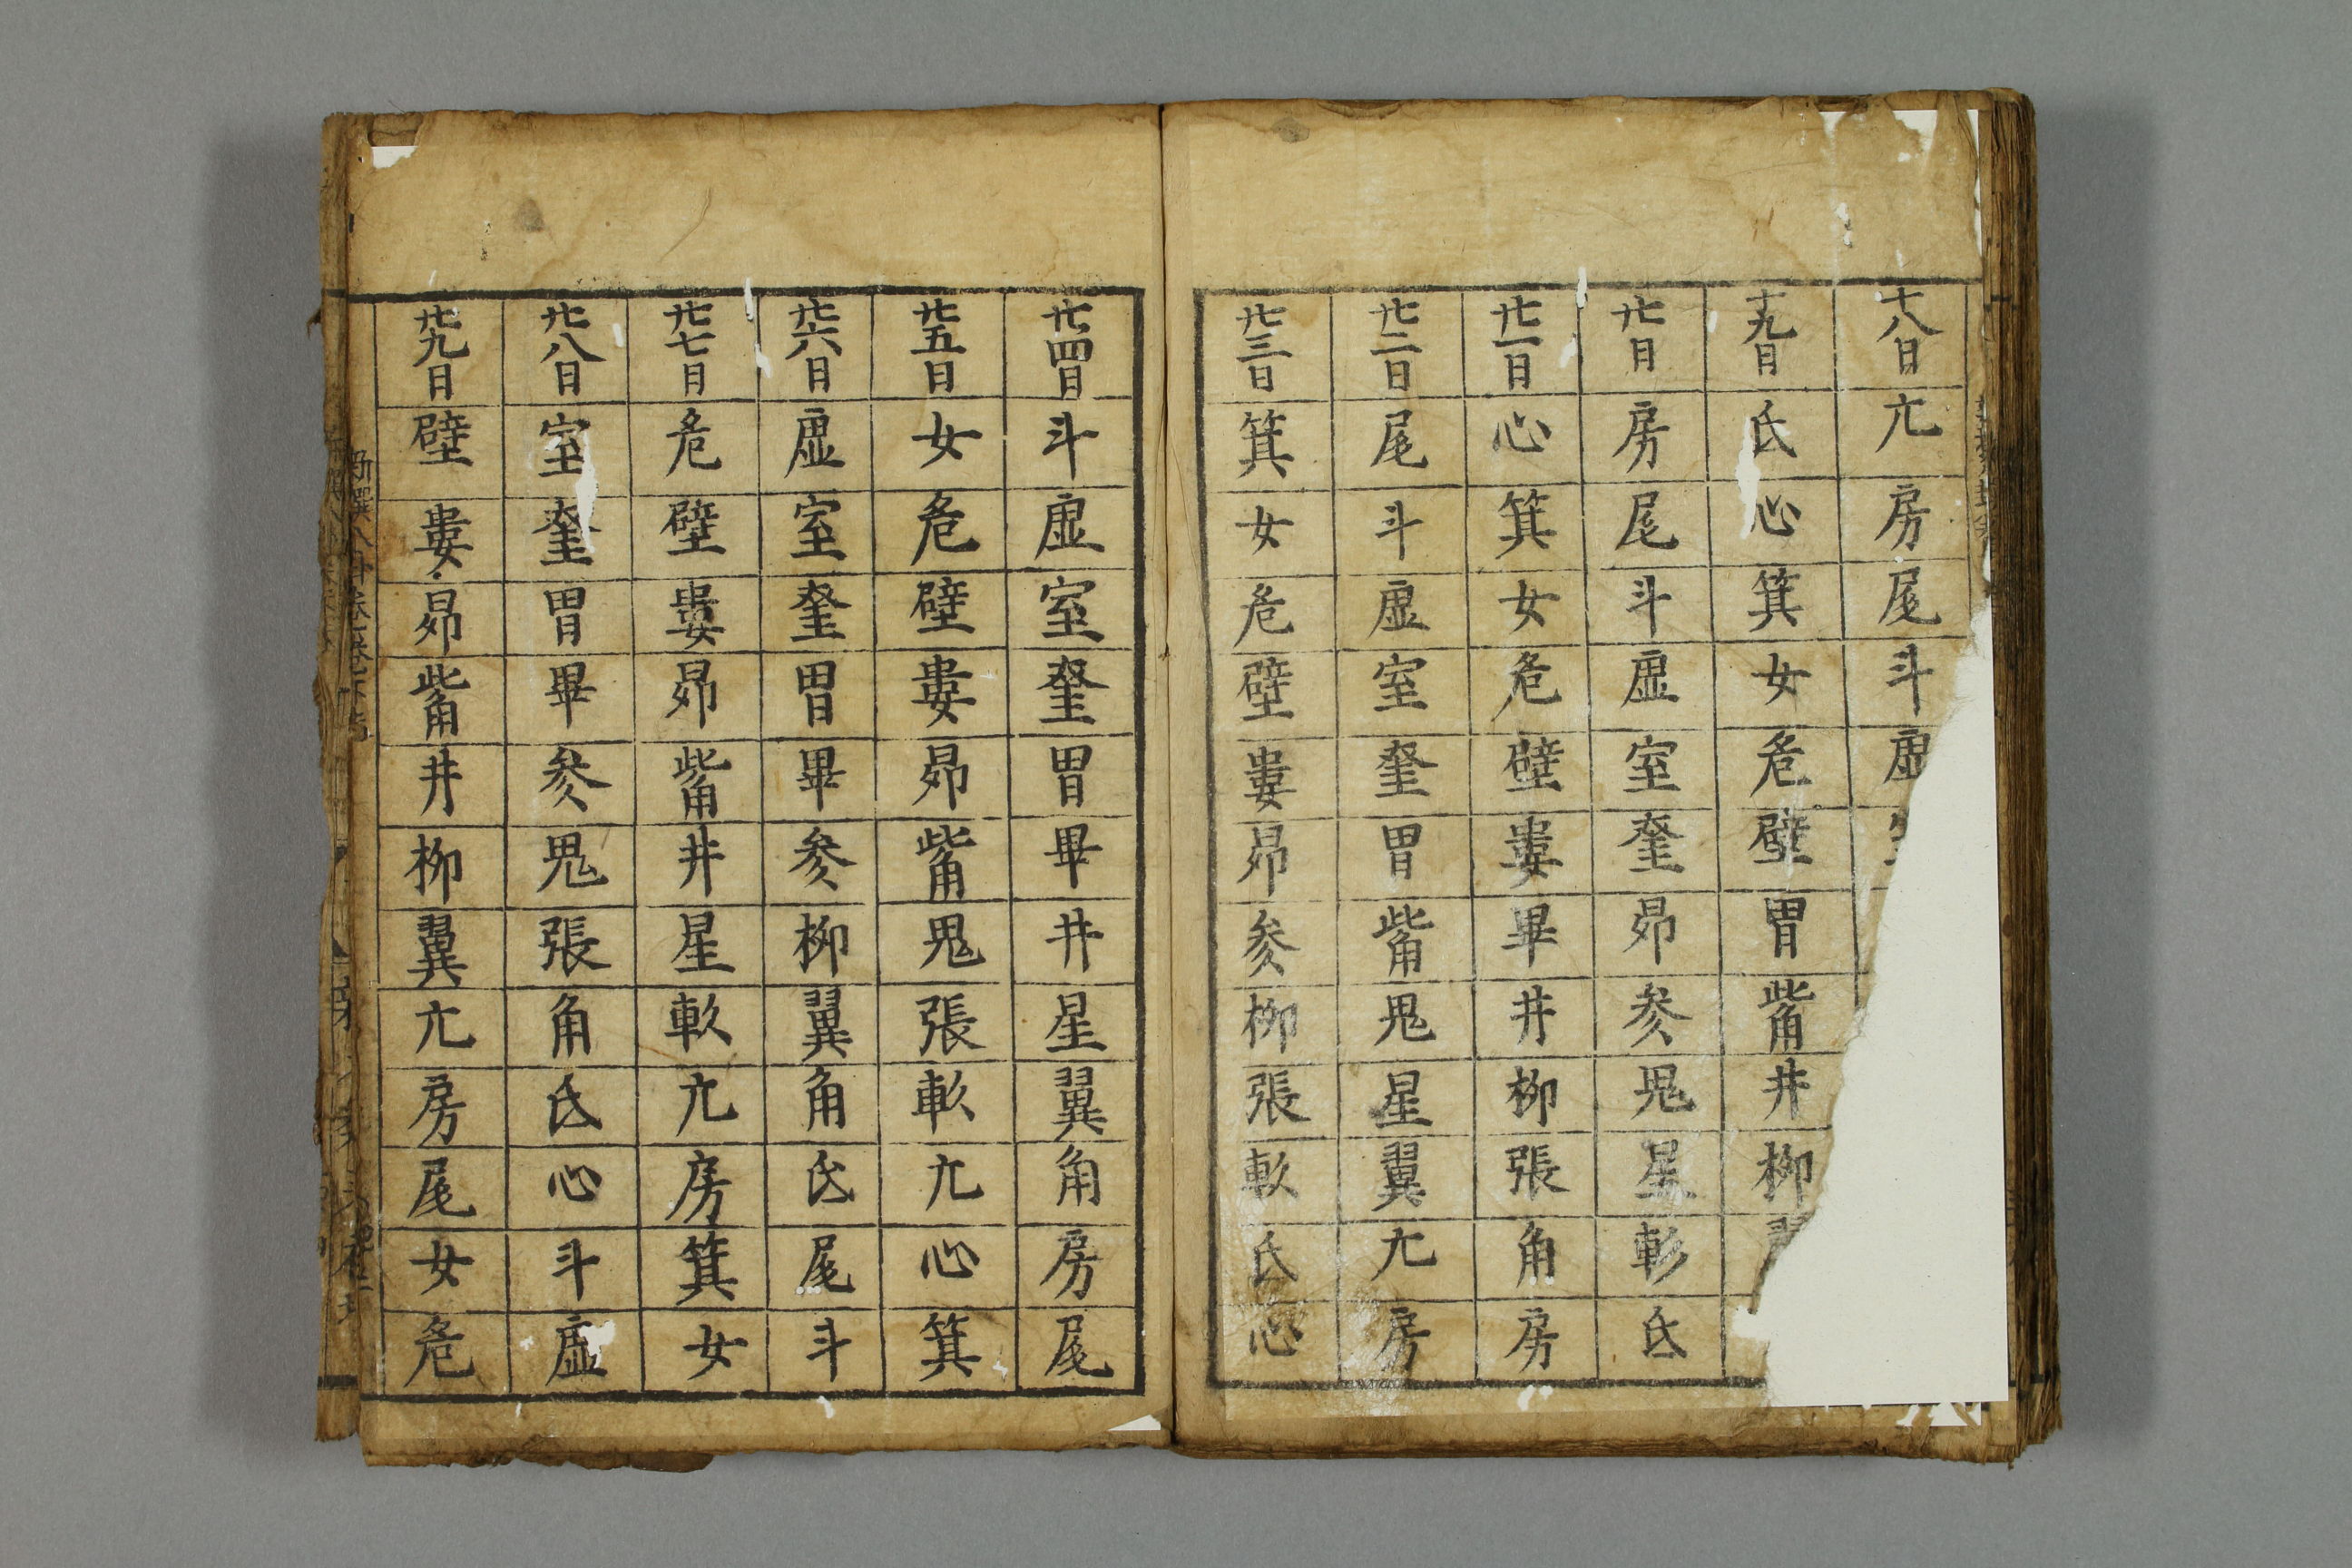 十八日 亢 房 尾 斗 虛
十九日 氐 心 箕 女 危 壁 胃 觜 井 柳
廿日 房 尾 斗 虛 室 奎 昴 参 鬼 星 軫 氐
廿一日 心 箕 女 危 壁 婁 畢 井 柳 張 角 房
廿二日 尾 斗 虛 室 奎 胃 觜 鬼 星 翼 亢 房
廿三日 箕 女 危 壁 婁 昴 参 柳 張 軫 氐 心
廿四日 斗 虛 室 奎 胃 畢 井 星 翼 角 房 尾
廿五日 女 危 壁 婁 昴 觜 鬼 張 軫 亢 心 箕
廿六日 虛 室 奎 胃 畢 参 柳 翼 角 氐 尾 斗
廿七日 危 壁 婁 昴 觜 井 星 軫 亢 房 箕 女
廿八日 室 奎 胃 畢 参 鬼 張 角 氐 心 斗 虛
廿九日 壁 婁 昴 觜 井 柳 翼 亢 房 尾 女 危